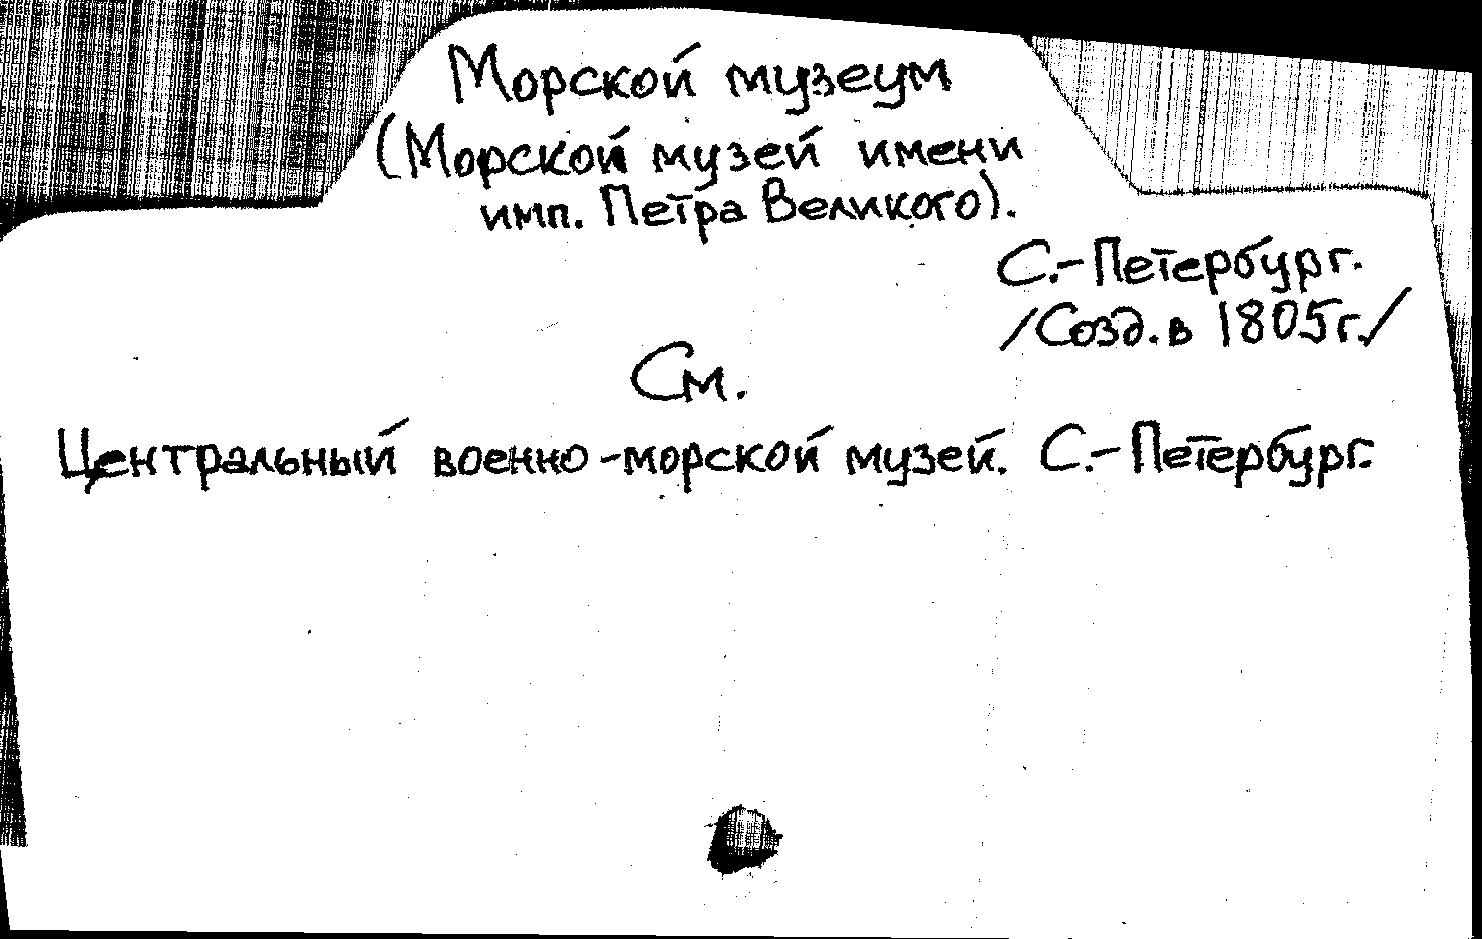 Морской музеум
(Морской музей имени
имп. Петра Великого).
С.-Петербург.
/Созд. в 1805 г./
См.
Центральный военно-морской музей. С.-Петербург.